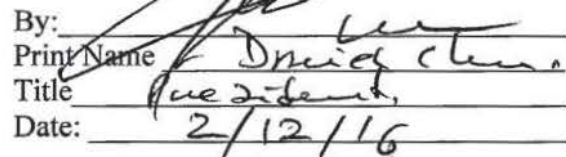 By:
Print Name David
Title President
Date: 2/12/16